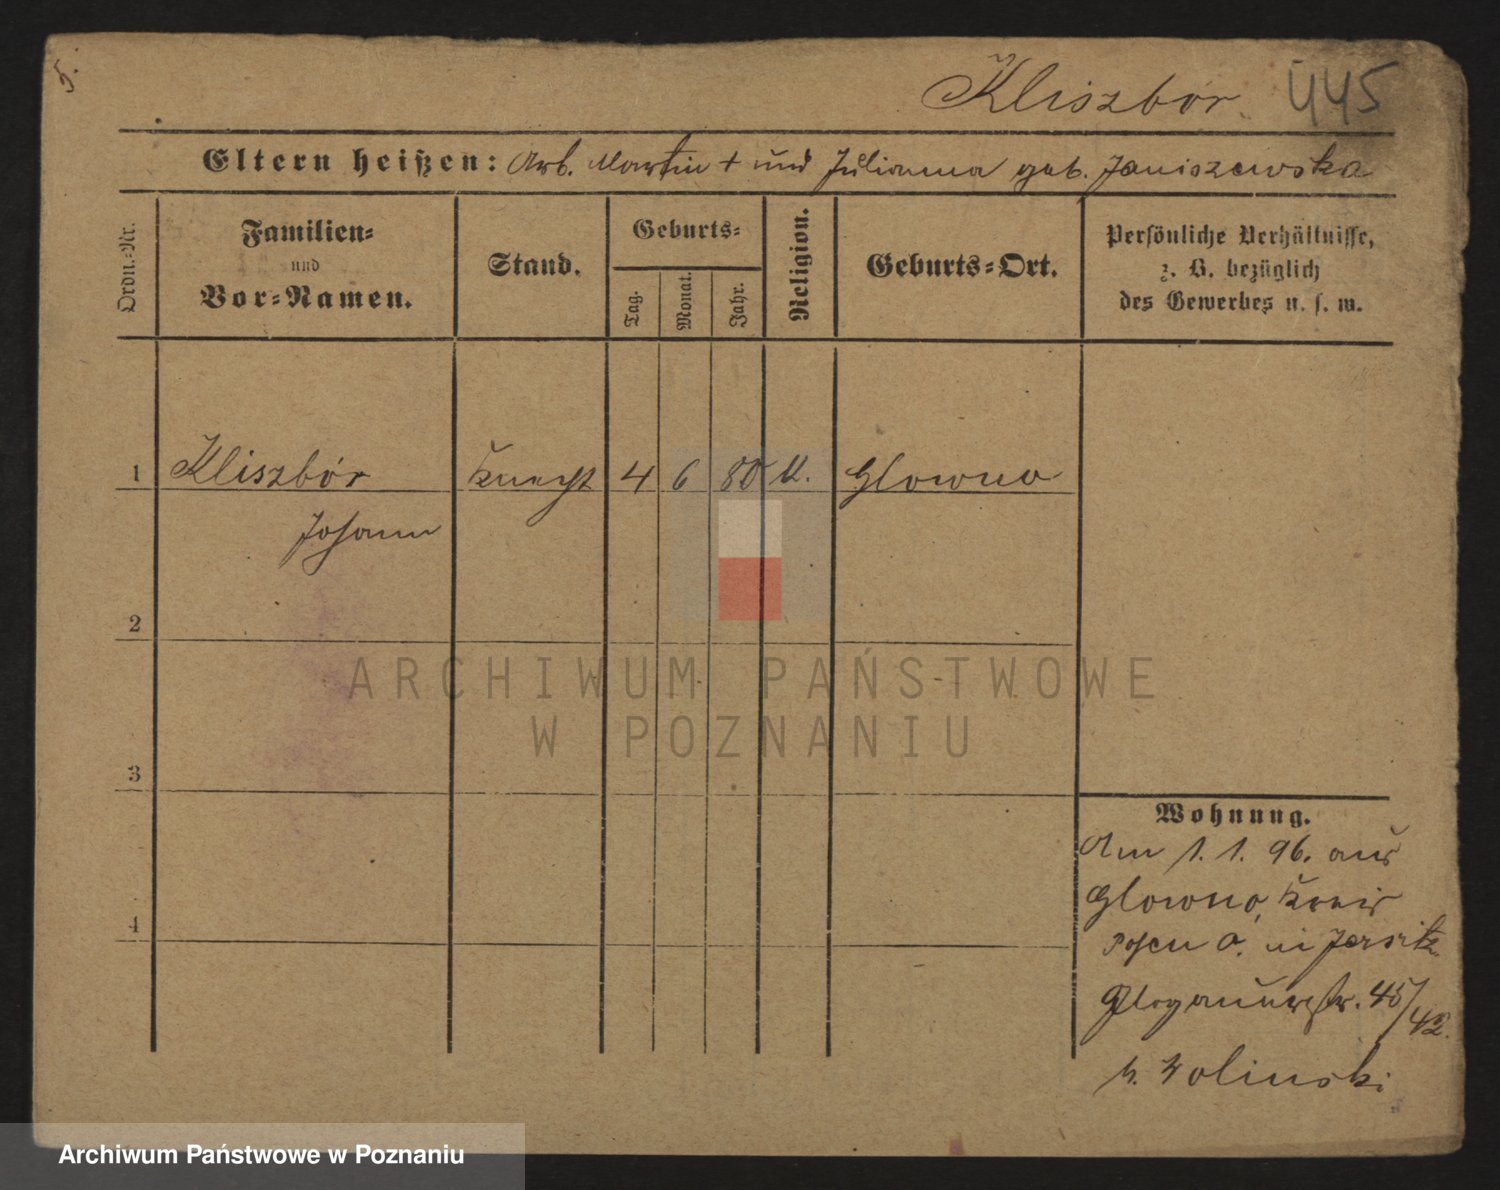 5.
Kliszbor 445
Eltern heißen: Arb. Martin + und Julianna geb. Janiszewska
Ordn.-Nr.
Familien-
und
Vor-Namen.
Stand.
Geburts-
Tag.
Monat.
Jahr.
Religion.
Geburts-Ort.
Persönliche Verhältnisse,
z. B. bezüglich
des Gewerbes u. s. w.
1 Kliszbór Knecht 4 6 80 K. Glowno
Johann
2
3
4
Wohnung.
Am 1. 1. 96. aus
Glowno, Kreis
Posen O. in Jersitz
Glogauerstr. 45/42.
b. Wolinski
ARCHIWUM PAŃSTWOWE
W POZNANIU
Archiwum Państwowe w Poznaniu